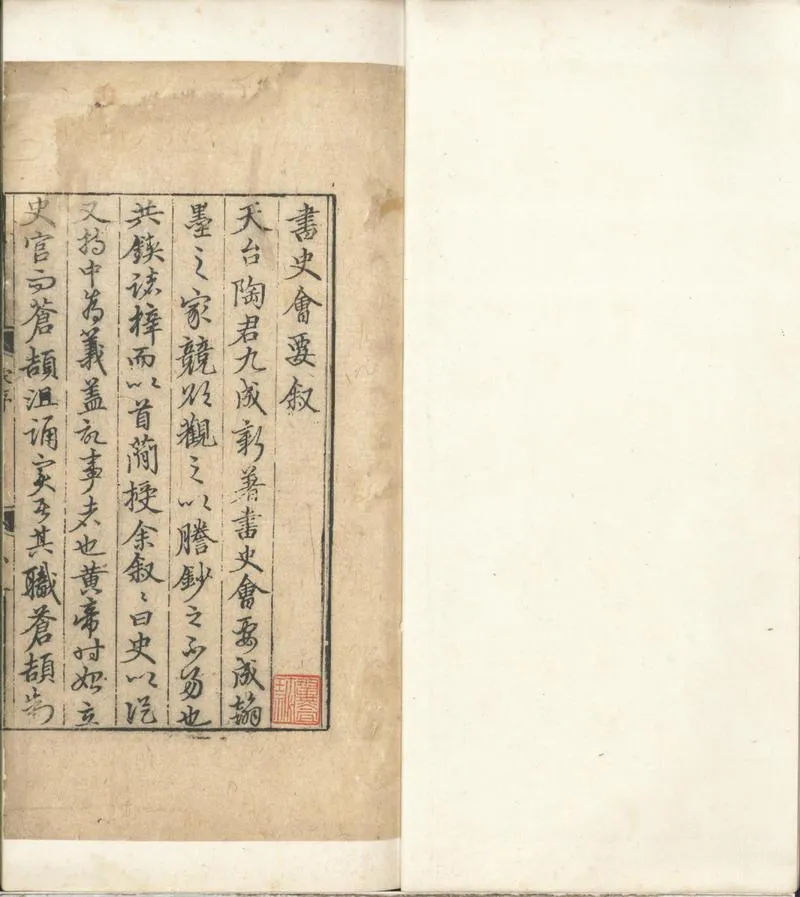 書史會要叙
天台陶君九成新著書史會要成翰
墨之家競欲觀之以謄鈔之不易也
共鋟諸梓而以首簡授余叙〻曰史以從
又持中為義盖記事者也黃帝时始立
史官而蒼頡沮誦寔居其職蒼頡